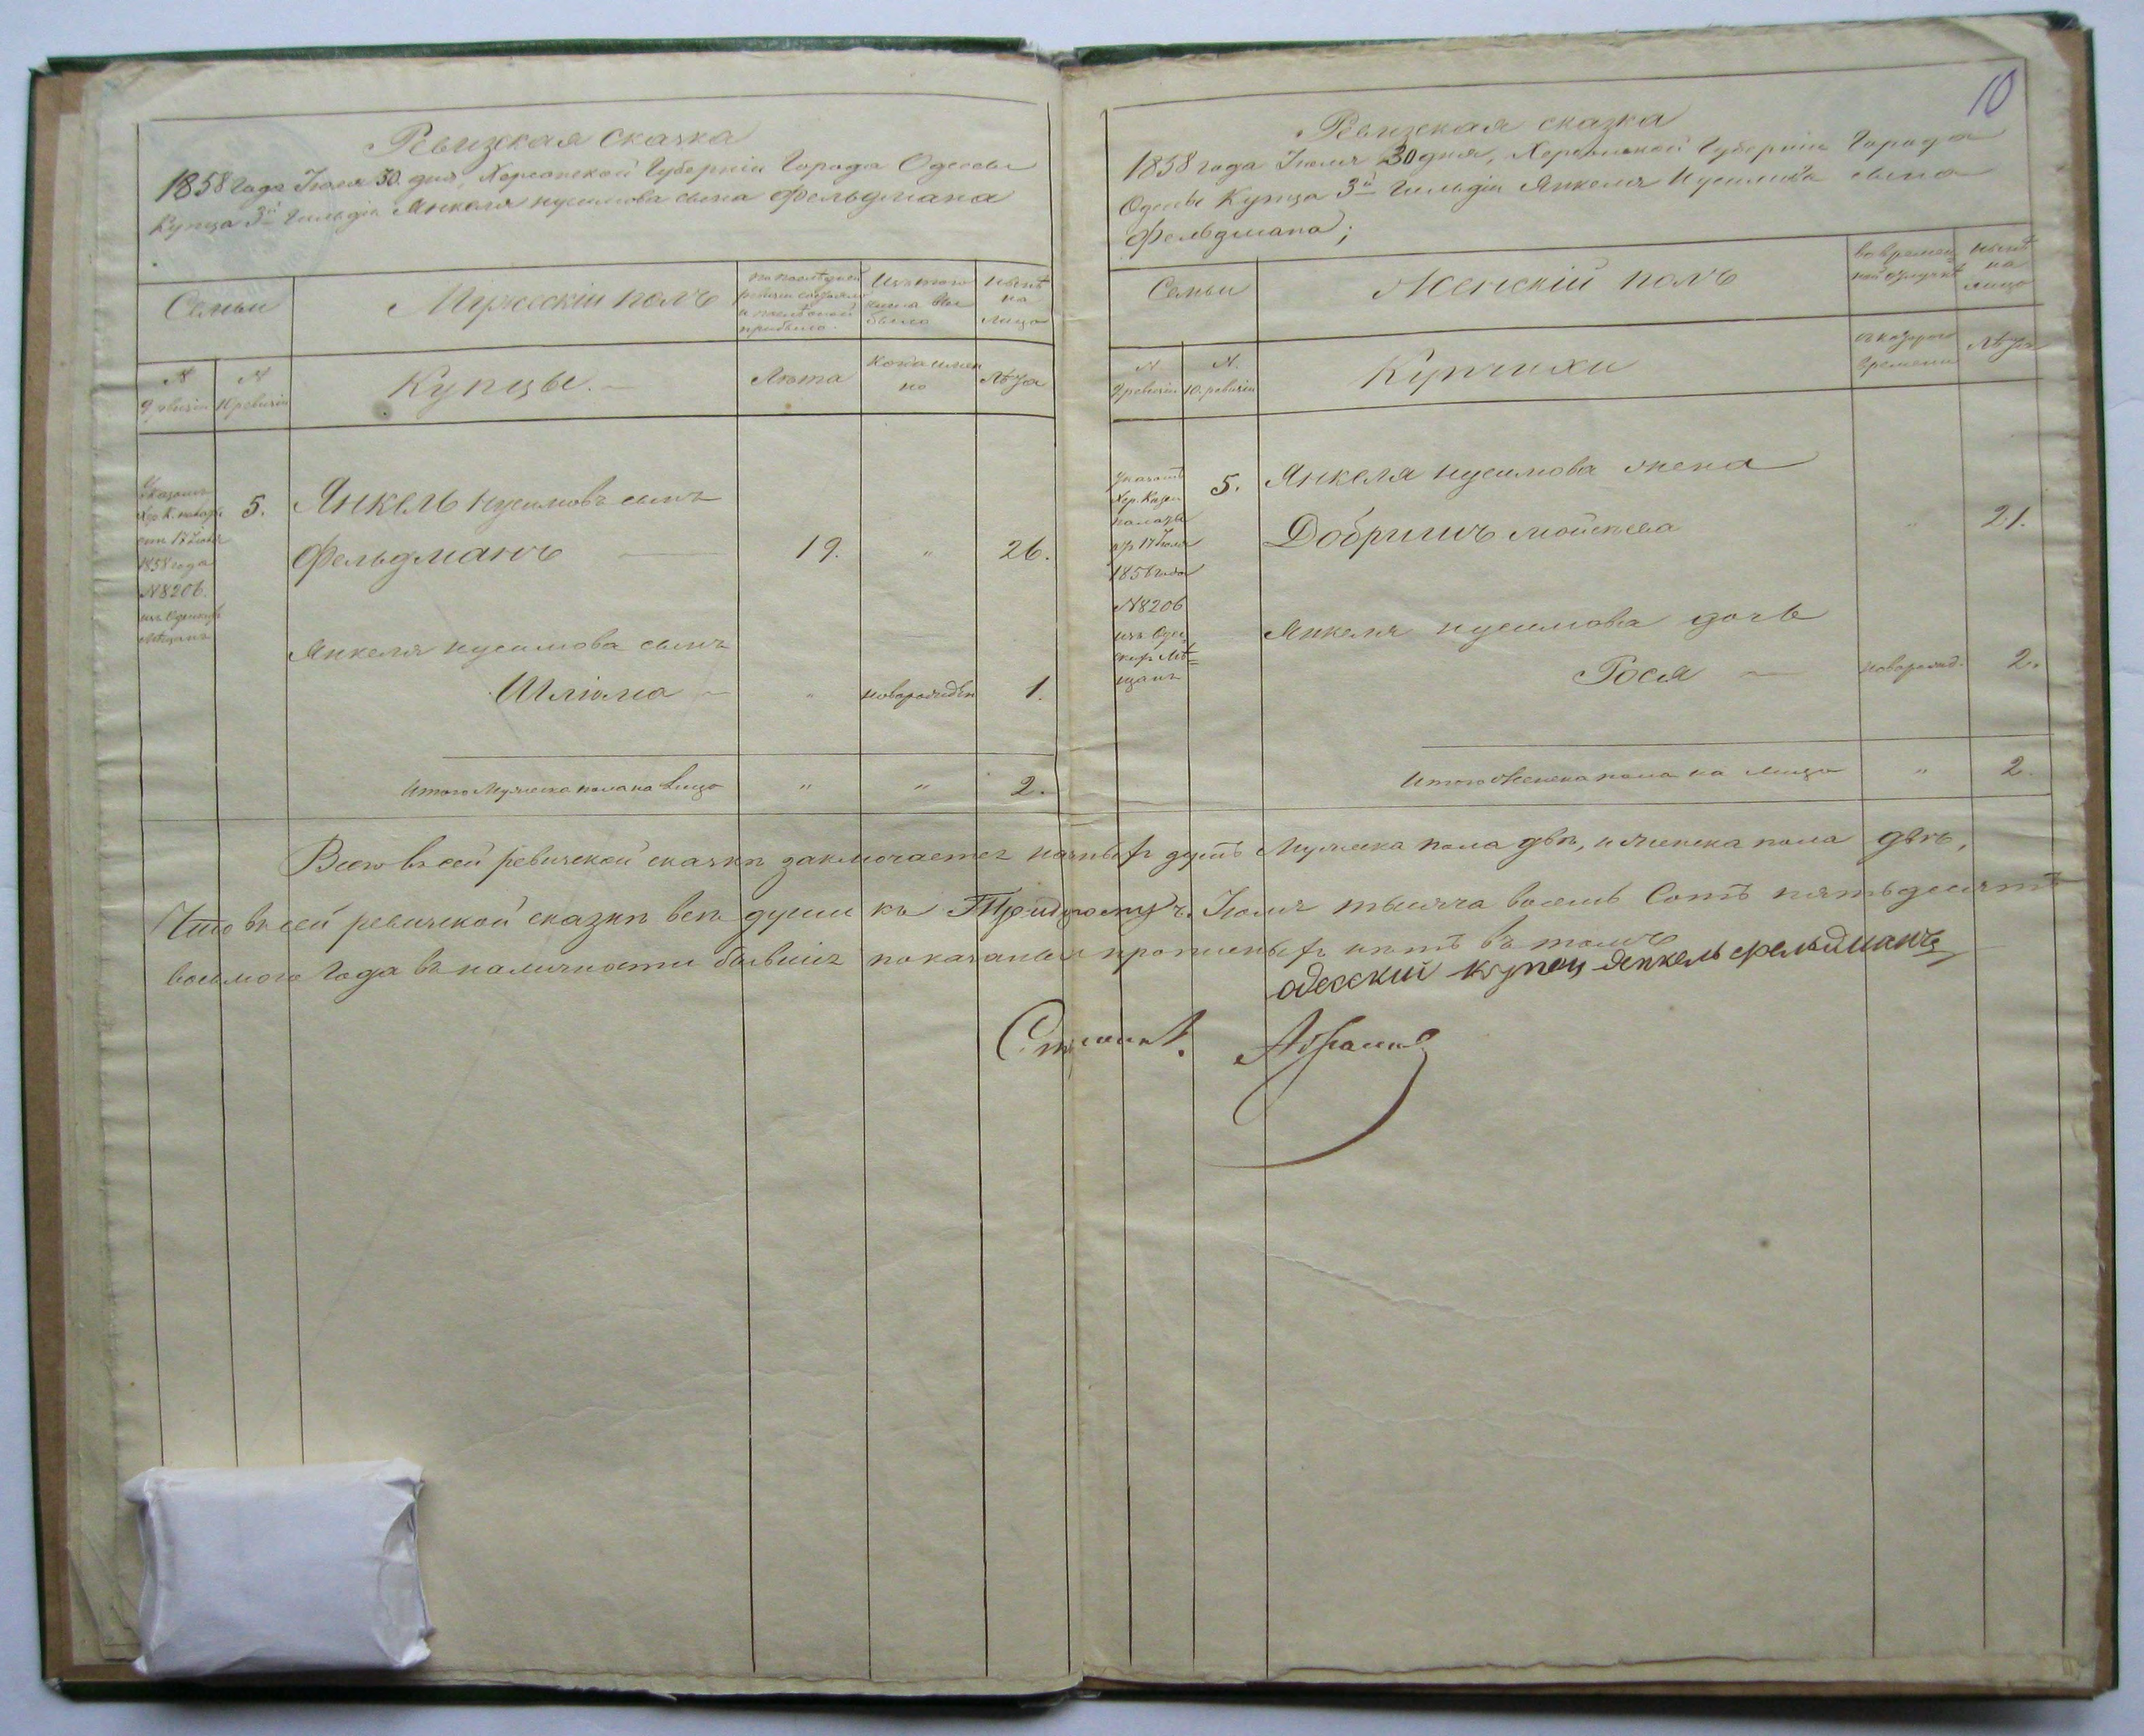 Ревизская сказка
1858 года Июля 30 дня, Херсонской Губерніи Города Одессы
Купца 3й Гильдіи Янкеля Нусимова сына Фельдмана
Семьи
Мужескій полъ
по последней ревизіи состояло и после оной прибыло
Изъ того числа выбыло
Ныне на лицо
№ 9 ревизіи
№ 10 ревизіи
Купцы.
Лета
Когда именно
Лета
Указомъ
Хер. К. палаты
отъ 17 Іюля
1858 года
№ 8206.
изъ Одесскихъ
Мещанъ
5.
Янкель Нусимовъ сынъ
Фельдманъ
19.
"
26.
Янкеля Нусимова сынъ
Шлiома
"
новорожден
1.
Итого Мужеска пола на лицо
"
"
2.
10
Ревизская сказка
1858 года Іюля 30 дня, Херсонской Губерніи Города
Одессы Купца 3й Гильдіи Янкеля Нусимова сына
Фельдмана;
Семьи
Женскій полъ
во времен
ной отлучкѣ
Нынѣ
на
лицо
№ 9 ревизіи
№ 10. ревизіи
Купчихи
съ котораго
времени
Лѣта
Указомъ
Хер. Казен
палаты
отъ 17 Іюля
1858 года
№ 8206
изъ Одес
скихъ Мѣ
щанъ
5.
Янкеля Нусимова жена
Добришъ Мошкова
"
21.
Янкеля Нусимова дочь
Рося
новорожд.
2.
Итого Женска пола на лицо
"
2.
Всего въ сей ревизской сказкѣ заключается наличныхъ душъ Мужеска пола двѣ, и Женска пола двѣ,
Что въ сей ревизской сказкѣ все души къ Іюля тысяча восемь Сотъ пятьдесятъ
восьмого Года въ наличности бывшіе показаны и прописныхъ нѣтъ въ томъ
одесский купец Янкель фельдманъ